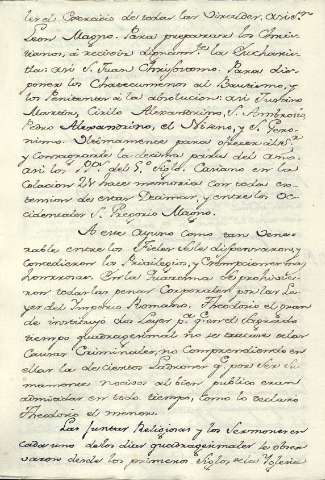 ler el Exercicio de todas las Virtudes, assi Sn
Leon Magno. Para prepararse los Chris-
tianos, á recivir dignamte la Eucharis-
tia: asi S. Juan Chrisostomo. Para dis-
poner los Catecumenos al Bautismo, y
los Penitentes á la absolucion: asi Justino
Martir, Cirilo Alexandrino, S. Ambrosio
Pedro Alexandrino, el Niseno, y S. Gero-
nimo. Ultimamente para ofrecer á
y consagrarle la decima parte del año.
asi los PP. del 5.º Siglo. Casiano en la
Colacion 21 hace memoria con toda es-
tension de estas Decimas, y entre los Oc-
cidentales S. Gregorio Magno.
A este Ayuno como tan Vene-
rable entre los Fieles se le dispensaron, y
concedieron los Privilegios, y Exempciones mas
honrrosas. En la Quaresma se prohibie-
ron todas las penas Corporales por las Le-
yes del Imperio Romano. Theodosio el gran-
de instituyó dos Leyes pa q. en el Sagrado
tiempo quadragesimal no se tratase de las
Causas Criminales, no comprendiendo en
ellas la de ciertos Ladrones q. por ser su-
mamente nocivos al bien publico eran
admitidas en todo tiempo, como lo declaró
Theodosio el menor.
Las Juntas Religiosas y los Sermones en
cada uno de los dias quadragesimales se obser
varon desde los primeros Siglos, en la Yglesia